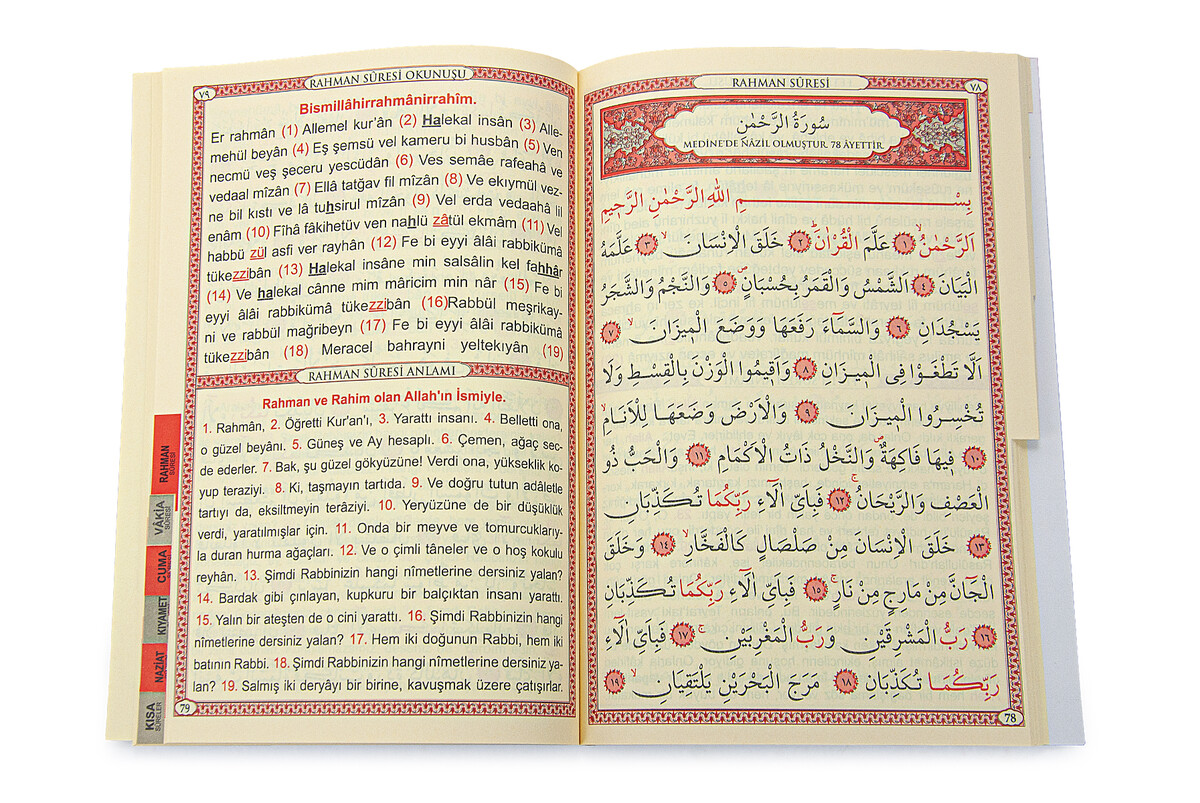 RAHMAN SÛRESİ OKUNUŞU
٧٩
Bismillâhirrahmânirrahîm.
Er rahmân (1) Allemel kur’ân (2) Halekal insân (3) Alle-
mehül beyân (4) Eş şemsü vel kameru bi husbân (5) Ven
necmü veş şeceru yescüdân (6) Ves semâe rafeahâ ve
vedaal mîzân (7) Ellâ tatğav fil mîzân (8) Ve ekıymül vez-
ne bil kıstı ve lâ tuhsirul mîzân (9) Vel erda vedaahâ lil
enâm (10) Fîhâ fâkihetüv ven nahlü zâtül ekmâm (11) Vel
habbü zül asfi ver rayhân (12) Fe bi eyyi âlâi rabbikümâ
tükezzibân (13) Halekal insâne min salsâlin kel fahhâr
(14) Ve halekal cânne mim mâricim min nâr (15) Fe bi
eyyi âlâi rabbikümâ tükezzibân (16)Rabbül meşrikay-
ni ve rabbül mağribeyn (17) Fe bi eyyi âlâi rabbikümâ
tükezzibân (18) Meracel bahrayni yeltekıyân (19)
RAHMAN SÛRESİ ANLAMI
Rahman ve Rahim olan Allah'ın İsmiyle.
1. Rahmân, 2. Öğretti Kur'an'ı, 3. Yarattı insanı. 4. Belletti ona,
o güzel beyânı. 5. Güneş ve Ay hesaplı. 6. Çemen, ağaç sec-
de ederler. 7. Bak, şu güzel gökyüzüne! Verdi ona, yükseklik ko-
yup teraziyi. 8. Ki, taşmayın tartıda. 9. Ve doğru tutun adâletle
tartıyı da, eksiltmeyin terâziyi. 10. Yeryüzüne de bir düşüklük
verdi, yaratılmışlar için. 11. Onda bir meyve ve tomurcukları-
yla duran hurma ağaçları. 12. Ve o çimli tâneler ve o hoş kokulu
reyhân. 13. Şimdi Rabbinizin hangi nîmetlerine dersiniz yalan?
14. Bardak gibi çınlayan, kupkuru bir balçıktan insanı yarattı.
15. Yalın bir ateşten de o cini yarattı. 16. Şimdi Rabbinizin hangi
nîmetlerine dersiniz yalan? 17. Hem iki doğunun Rabbi, hem iki
batının Rabbi. 18. Şimdi Rabbinizin hangi nîmetlerine dersiniz ya-
lan? 19. Salmış iki deryâyı bir birine, kavuşmak üzere çatışırlar.
79
RAHMAN SÛRESİ
VÂKİA SÛRESİ
CUMA
KIYAMET
NAZİAT
KISA SÛRELER
RAHMAN SÛRESİ
٧٨
سُورَةُ الرَّحْمٰنِ
MEDİNE'DE NÂZİL OLMUŞTUR. 78 ÂYETTİR
بِسْمِ اللّٰهِ الرَّحْمٰنِ الرَّحِيمِ
اَلرَّحْمٰنُۙ ﴿١﴾ عَلَّمَ الْقُرْاٰنَۜ ﴿٢﴾ خَلَقَ الْاِنْسَانَۙ ﴿٣﴾ عَلَّمَهُ
الْبَيَانَ ﴿٤﴾ اَلشَّمْسُ وَالْقَمَرُ بِحُسْبَانٍۖ ﴿٥﴾ وَالنَّجْمُ وَالشَّجَرُ
يَسْجُدَانِ ﴿٦﴾ وَالسَّمَٓاءَ رَفَعَهَا وَوَضَعَ الْمِيزَانَۙ ﴿٧﴾
اَلَّا تَطْغَوْا فِي الْمِيزَانِ ﴿٨﴾ وَاَقِيمُوا الْوَزْنَ بِالْقِسْطِ وَلَا
تُخْسِرُوا الْمِيزَانَ ﴿٩﴾ وَالْاَرْضَ وَضَعَهَا لِلْاَنَامِۙ
﴿١٠﴾ فِيهَا فَاكِهَةٌۖ وَالنَّخْلُ ذَاتُ الْاَكْمَامِ ﴿١١﴾ وَالْحَبُّ ذُو
الْعَصْفِ وَالرَّيْحَانُۚ ﴿١٢﴾ فَبِاَيِّ اٰلَٓاءِ رَبِّكُمَا تُكَذِّبَانِ
﴿١٣﴾ خَلَقَ الْاِنْسَانَ مِنْ صَلْصَالٍ كَالْفَخَّارِۙ ﴿١٤﴾ وَخَلَقَ
الْجَٓانَّ مِنْ مَارِجٍ مِنْ نَارٍۚ ﴿١٥﴾ فَبِاَيِّ اٰلَٓاءِ رَبِّكُمَا تُكَذِّبَانِ
﴿١٦﴾ رَبُّ الْمَشْرِقَيْنِ وَرَبُّ الْمَغْرِبَيْنِۚ ﴿١٧﴾ فَبِاَيِّ اٰلَٓاءِ
رَبِّكُمَا تُكَذِّبَانِ ﴿١٨﴾ مَرَجَ الْبَحْرَيْنِ يَلْتَقِيَانِۙ ﴿١٩﴾
78